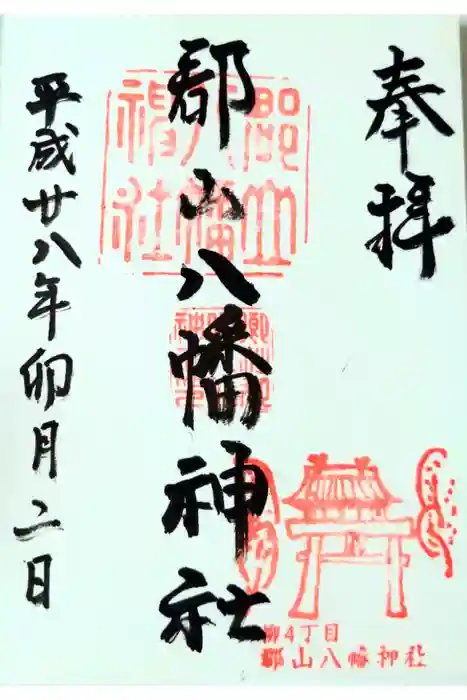 奉拝
郡山八幡神社
平成廿八年卯月二日
柳4丁目
郡山八幡神社